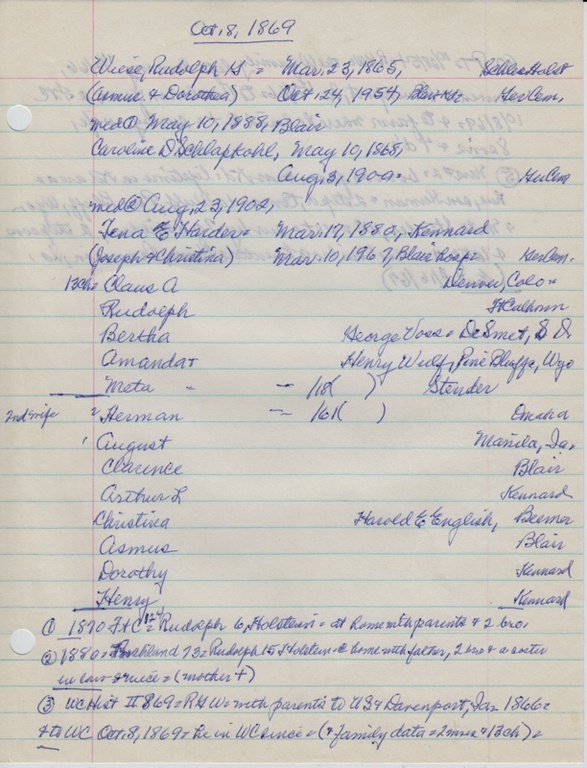 Oct. 8, 1869
Wiese, Rudolph H = Mar. 23, 1865, Schles Holst
(Asmus & Dorothea) Oct. 24, 1954, Blair Hs HerCem.
med① May 10, 1888, Blair
Caroline D Schlapkohl, May 10, 1868,
Aug. 3, 1900 = HerCem
med② Aug. 23, 1902,
Tena E Harder = Mar. 19, 1880, Kennard
(Joseph & Christina) Mar. 10, 1967, Blair Hosp = HerCem.
13ch = Claus A Denver, Colo =
Rudolph Ft Calhoun
Bertha George Voss = DeSmet, S D.
Amanda + Henry Wulf, Pine Bluffs, Wyo
Meta - - 118( ) Stender
2nd wife = Herman - 161( ) Omaha
August Manila, Ia,
Clarence Blair
Arthur L Kennard
Christina Harold E English, Beemer
Asmus Blair
Dorothy Kennard
Henry Kennard
① 1870 FtC = Rudolph 6, Holstein = at home with parents & 2 bro.
② 1880 = Richland 73 = Rudolph 15 Holstein = @ home with father, 2 bro & a sister
in law & niece = (mother +)
③ WCHist II 869 = RHW = with parents to US & Davenport, Ia = 1866 =
& to WC Oct. 8, 1869 = he in WC since = (& family data = 2 mrs & 13 ch) =